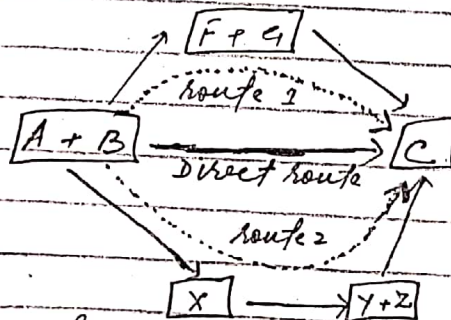 F + G
route 1
A + B
C
Direct route
route 2
X
Y+Z